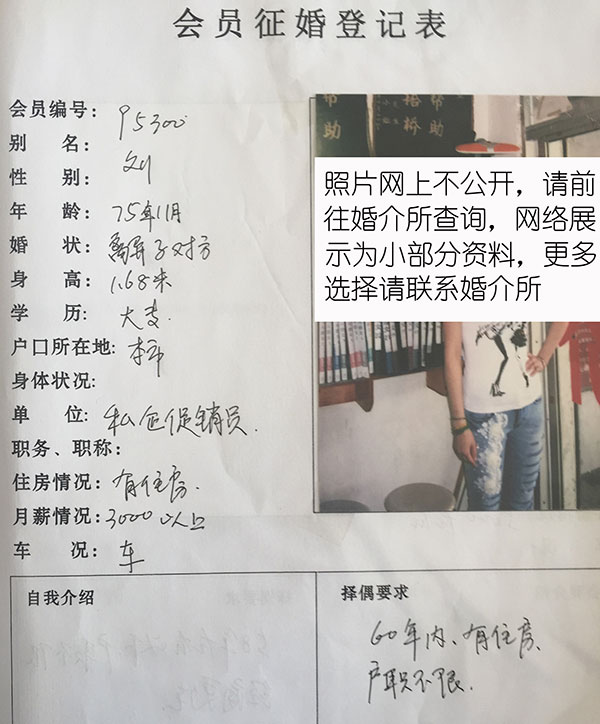 会员征婚登记表
会员编号: 95300
别 名: 刘
性 别:
年 龄: 75年11月
婚 状: 离异子对方
身 高: 1.68米
学 历: 大专.
户口所在地: 本市
身体状况:
单 位: 私企促销员.
职务、职称:
住房情况: 有住房.
月薪情况: 3000以上
车 况: 车
帮助
搭桥
帮助
照片网上不公开，请前
往婚介所查询，网络展
示为小部分资料，更多
选择请联系婚介所
自我介绍
择偶要求
60年内、有住房、
户职不限.